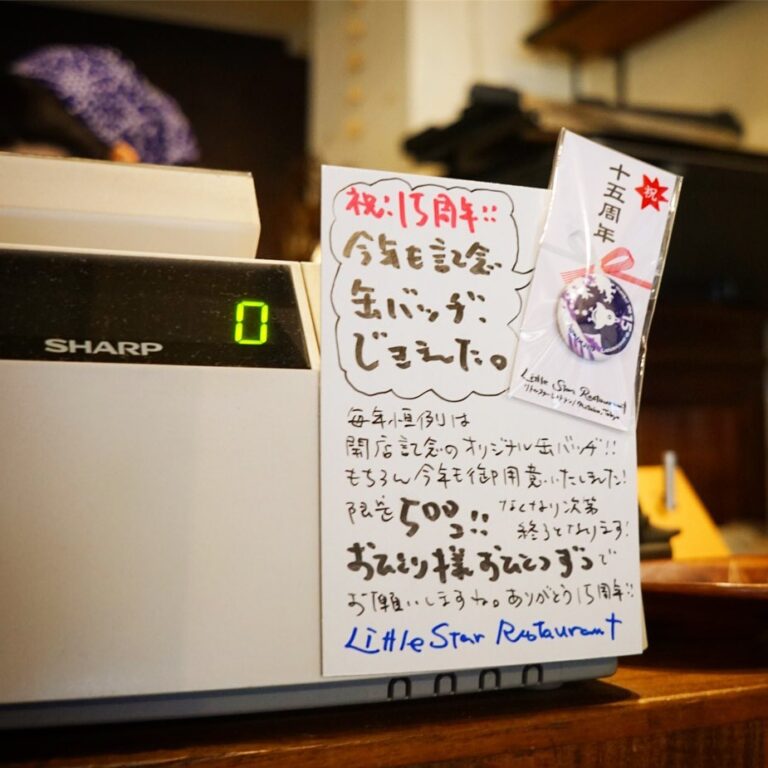 SHARP
0
祝:15周年!!
今年も記念
缶バッヂ、
できました。
毎年恒例は
開店記念のオリジナル缶バッヂ!!
もちろん今年も御用意いたしました!
限定500コ!! なくなり次第
終了となります!
おひとり様おひとつずつで
お願いしますね。ありがとう15周年!!
Little Star Restaurant
祝
十五周年
15
Little Star Restaurant